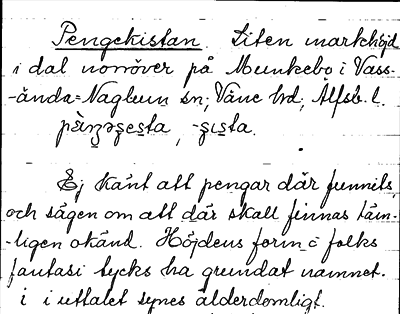 Pengekistan Liten markhöjd
i dal norröver på Munkebo i Vass-
-ända-Naglum sn; Väne hd, Älfsb. l.
-gista.
Ej känt att pengar där funnits,
och sägen om att där skall finnas täm-
-ligen okänd. Höjdens form o folks
fantasi tycks ha grundat namnet.
i i uttalet synes ålderdomligt.